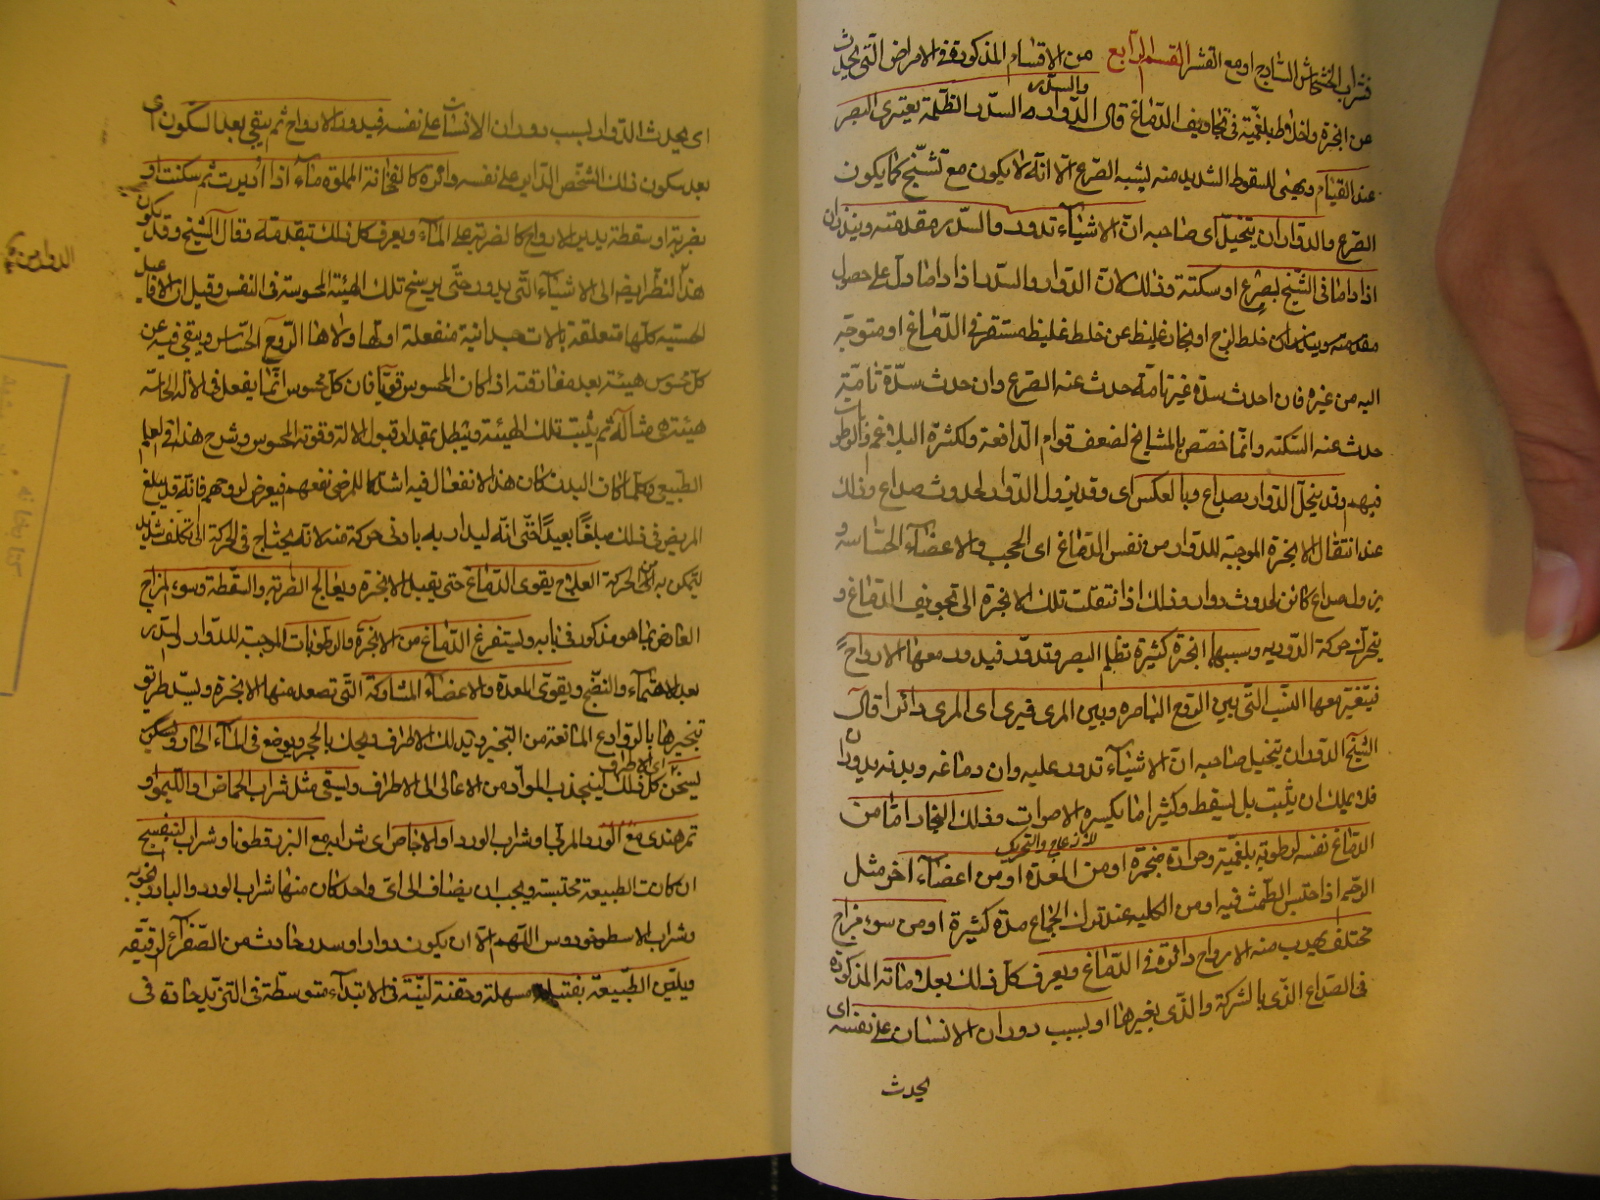 شراب الخشخاش الساذج او مع القشر القسم الرابع من الاقسام المذكورة فى الامراض التى يحدث
من ابخرة واخلاط بلغمية فى تجاويف الدماغ قال الدوار والسدر السدر الظلمة يعترى البصر
عند القيام ويهئ للسقوط الشديد منه يشبه الصرع الا انه لا يكون مع تشنج كما يكون
الصرع والدوار ان يتخيل اى صاحبه ان الاشياء تدور والسدر مقدمته وينذران
اذا داما فى الشيخ بصرع او سكتة وذلك لان الدوار والسدر اذا داما دل على حصول
خلط لزج او بخار غليظ عن خلط غليظ مستقر فى الدماغ او متوجه
اليه من غيره فان احدث سدة غير تامة حدث عنه الصرع وان حدث سدة تامة
حدث عنه السكتة وانما خصص بالمشايخ لضعف قوام الدافعة ولكثرة البلاغم والرطوبات
فيهم وقد ينحل الدوار بصداع وبالعكس اى وقد يزول الدوار لحدوث صداع وذلك
عند انتقال الابخرة الموجبة للدوار من نفس الدماغ اى الحجب والاعضاء الحساسة و
يزول صداع كائن لحدوث دوار وذلك اذا انتقلت تلك الابخرة الى تجويف الدماغ و
يتحرك حركة الدورية وسببها ابخرة كثيرة تظلم البصر وتدور فيدور معها الارواح
فيتغير معها النسب التى بين الروح الباصرة وبين المرى فيرى اى المرى دائرا قال
الشيخ الدوران يتخيل صاحبه ان الاشياء تدور عليه وان دماغه وبدنه يدوران
فلا يملك ان يثبت بل يسقط وكثيرا ما يكره الاصوات وذلك البخار اما من
الدماغ نفسه لرطوبة بلغمية وحرارة مبخرة او من المعدة او من اعضاء اخر مثل
الرحم اذا احتبس الطمث فيه او من الكلية عند ترك الجماع مدة كثيرة او من سوء مزاج
مختلف يهرب منه الارواح دائرة فى الدماغ ويعرف كل ذلك بعلاماته المذكورة
فى الصداع الذى بالشركة والذى بغيرها او بسبب دوران الانسان على نفسه اى
يحدث
اى يحدث الدوار بسبب دوران الانسان على نفسه فيدور الارواح ثم يبقى بعد السكون اى
بعد سكون ذلك الشخص الدائر على نفسه دائرة كالفنجانة المملوة ماء اذا اديرت ثم سكنت او
بضربة او سقطة يدير الارواح كالضربة على الماء ويعرف كل ذلك بتقدمه فقال الشيخ وقد يكون
هذا لنظر ايضا الى الاشياء التى تدور حتى يرسخ تلك الهيئة المحسوسة فى النفس وقيل ان الافاعيل
الحسية كلها متعلقة بالات جسدانية منفعلة اولها واولاها الروح الحساس ويبقى فيه عن
كل محسوس هيئة بعد مفارقته اذا كان المحسوس قويا فان كل محسوس انما يفعل فى الالة الحاسة
هيئة هى مثاله ثم يثبت تلك الهيئة وتبطل بمقدار قبول الالة وقوة المحسوس وشرح هذا فى العلم
الطبيعى وكلما كان البدن هذا الانفعال فيه اشد كالمرضى فانه قد يبلغ
المريض فى ذلك مبلغا بعيدا حتى انه ليدار به بادنى حركة منه لانه يحتاج فى الحركة الى تكلف شديد
ليتمكن به من الحركة العلاج يقوى الدماغ حتى يقبل الابخرة ويعالج الضربة والسقطة وسوء المزاج
العارض بما هو مذكور فى بابه ويستفرغ الدماغ من الابخرة والرطوبات الموجبة للدوار والسدر
بعد الاحتماء والنضج ويقوى المعدة والاعضاء المشاركة التى تصعد منها الابخرة ويسد طريق
تبخيرها بالروادع المانعة من التبخير وتدلك الاطراف ويحك بالحجر ويوضع فى الماء الحار وليكن
يسخن كل ذلك اى الاطراف لينجذب المواد من الاعالى الى الاطراف ويسقى مثل شراب الحماض او الليمو او
تمر هندى مع الورد المربى وشراب الورد او الاجاص اى شرابه مع البزر قطونا وشراب البنفسج
ان كانت الطبيعة محتبسة ويجب ان يضاف الى اى واحد كان منها شراب الورد والبادرنجبويه
وشراب الاسطوخودوس اللهم الا ان يكون دوار او سدر حادث من الصفراء الرقيقة
ويلين الطبيعة بفتيلة مسهلة وحقنة لينة فى الابتداء متوسطة فى التزيد حادة فى